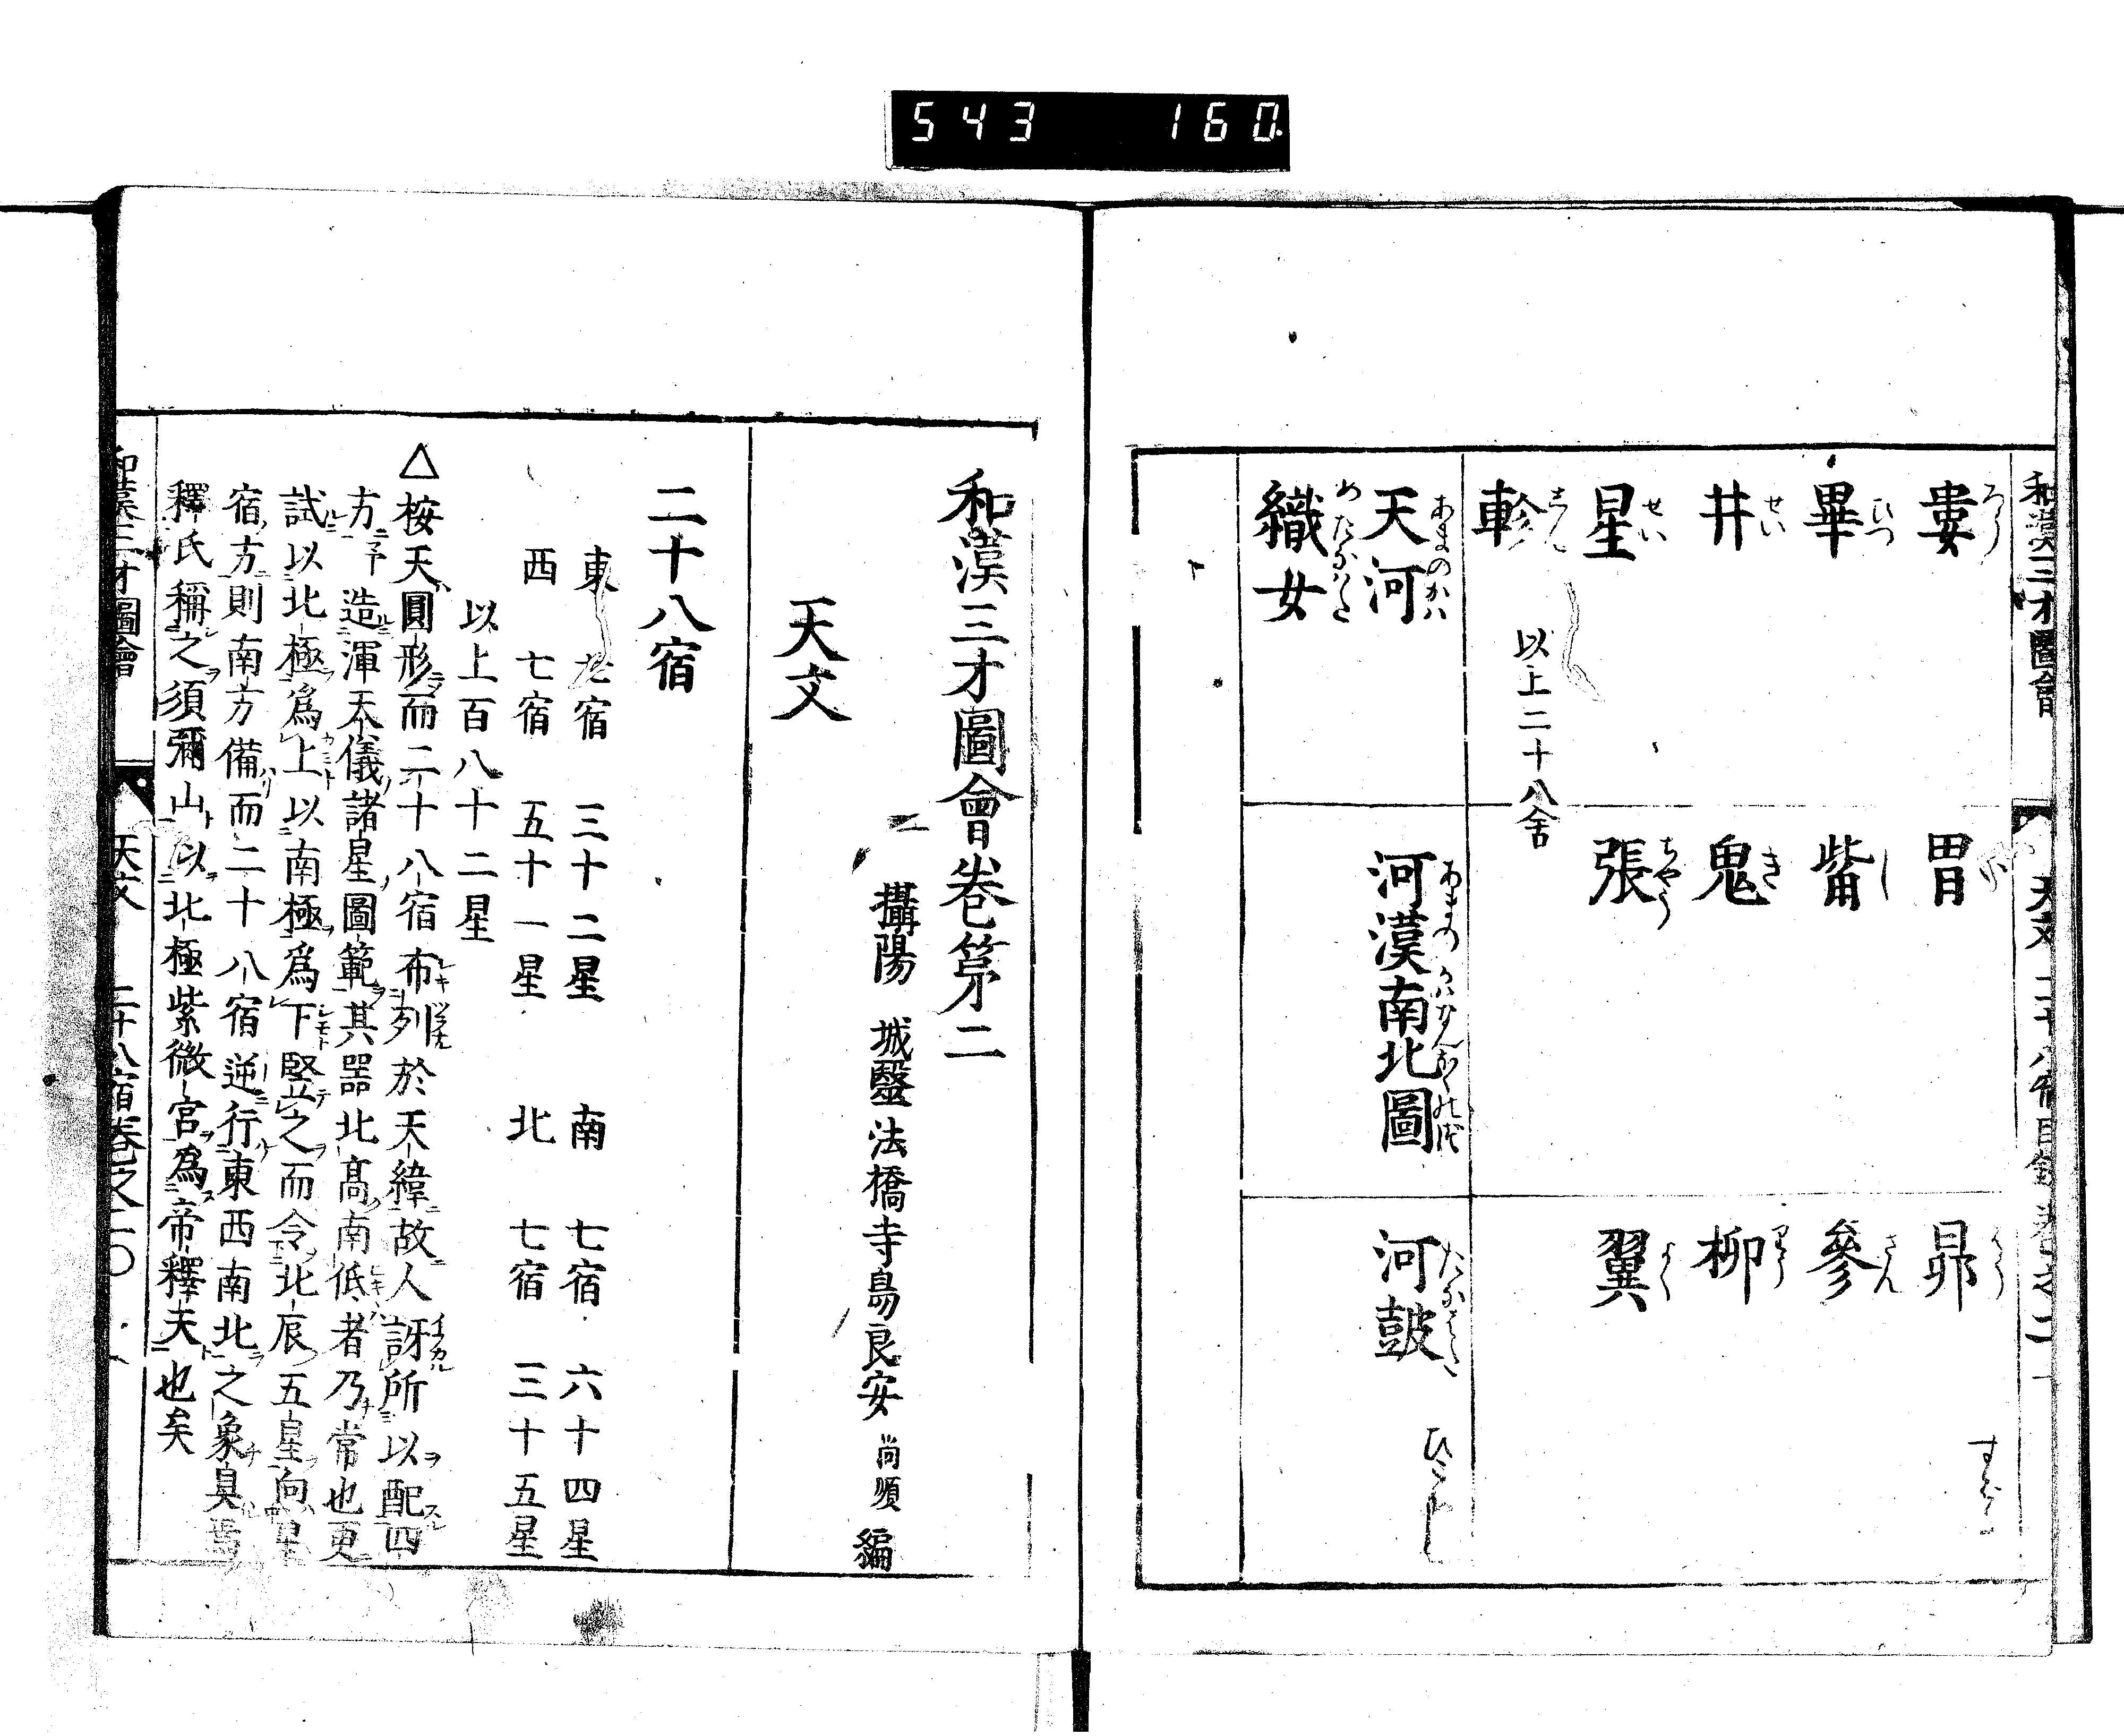 543 160
和漢三才圖會 天文 二十八宿目録 卷之二
婁 胃 昴
畢 觜 參
井 鬼 柳
星 張 翼
軫 以上二十八舍
天河 河漢南北圖 河鼓
織女
和漢三才圖會卷第二
攝陽 城醫法橋寺島良安 尚順 編
天文
二十八宿
東 七宿 三十二星 南 七宿 六十四星
西 七宿 五十一星 北 七宿 三十五星
以上百八十二星
△桉天圓形而二十八宿布列於天緯故人訝所以配四
方予造渾天儀諸星圖範其噐北髙南低者乃常也更
試以北極爲上以南極爲下竪之而令北辰五星向星
宿方則南方備而二十八宿逆行東西南北之象具焉
釋氏稱之須彌山以北極紫微宮爲帝釋天也矣
和漢三才圖會 天文 二十八宿 卷之二〇